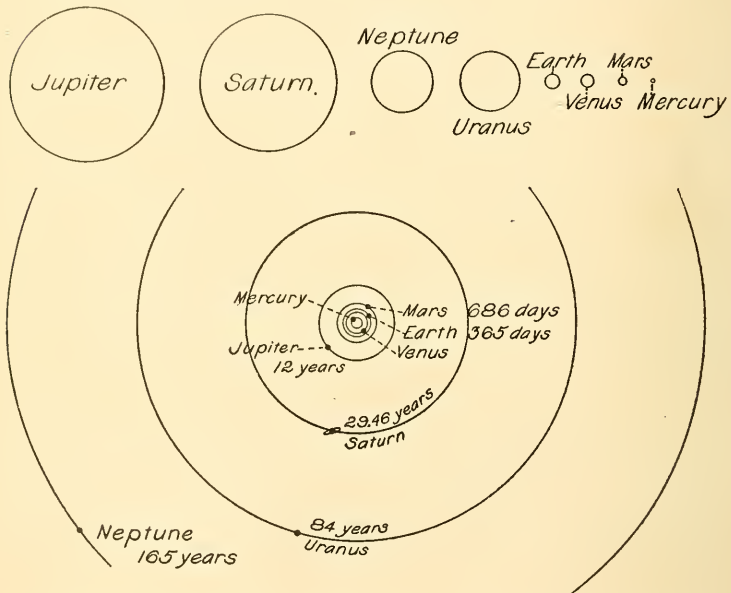 Jupiter
Saturn.
Neptune
Uranus
Earth
Venus
Mars
Mercury
Mercury
Mars 686 days
Earth 365 days
Venus
Jupiter
12 years
29.46 years
Saturn
84 years
Uranus
Neptune
165 years